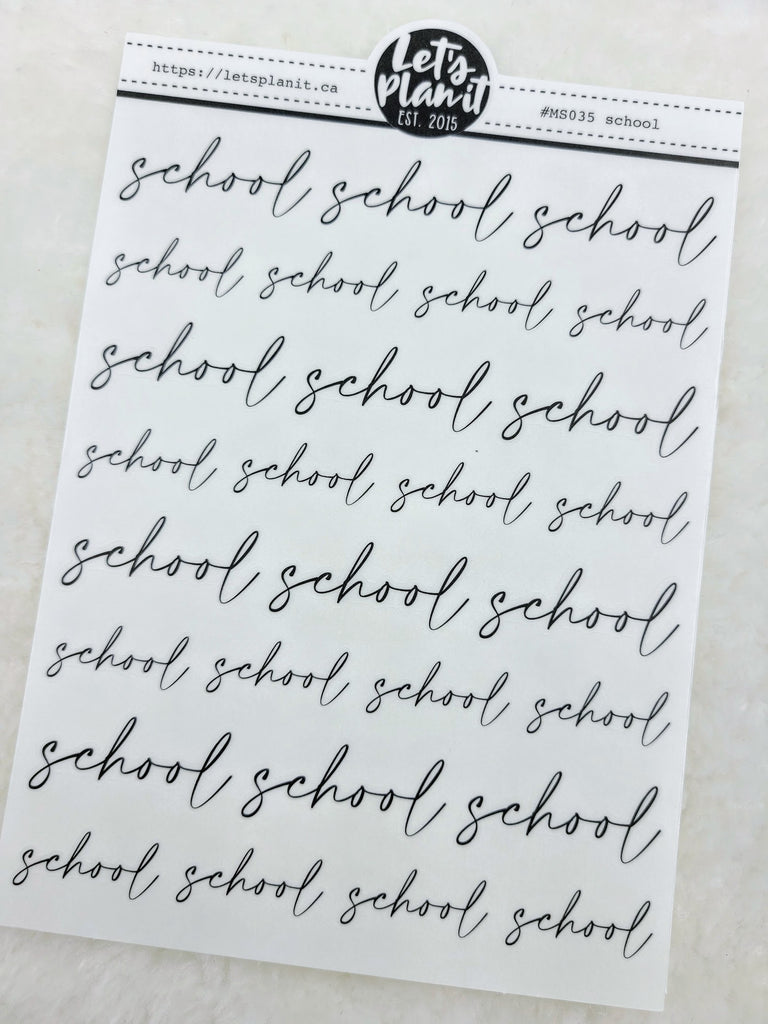 https://letsplanit.ca
Let's
Plan it
EST. 2015
#MS035 school
school school school
school school school school
school school school
school school school school
school school school
school school school school
school school school
school school school school